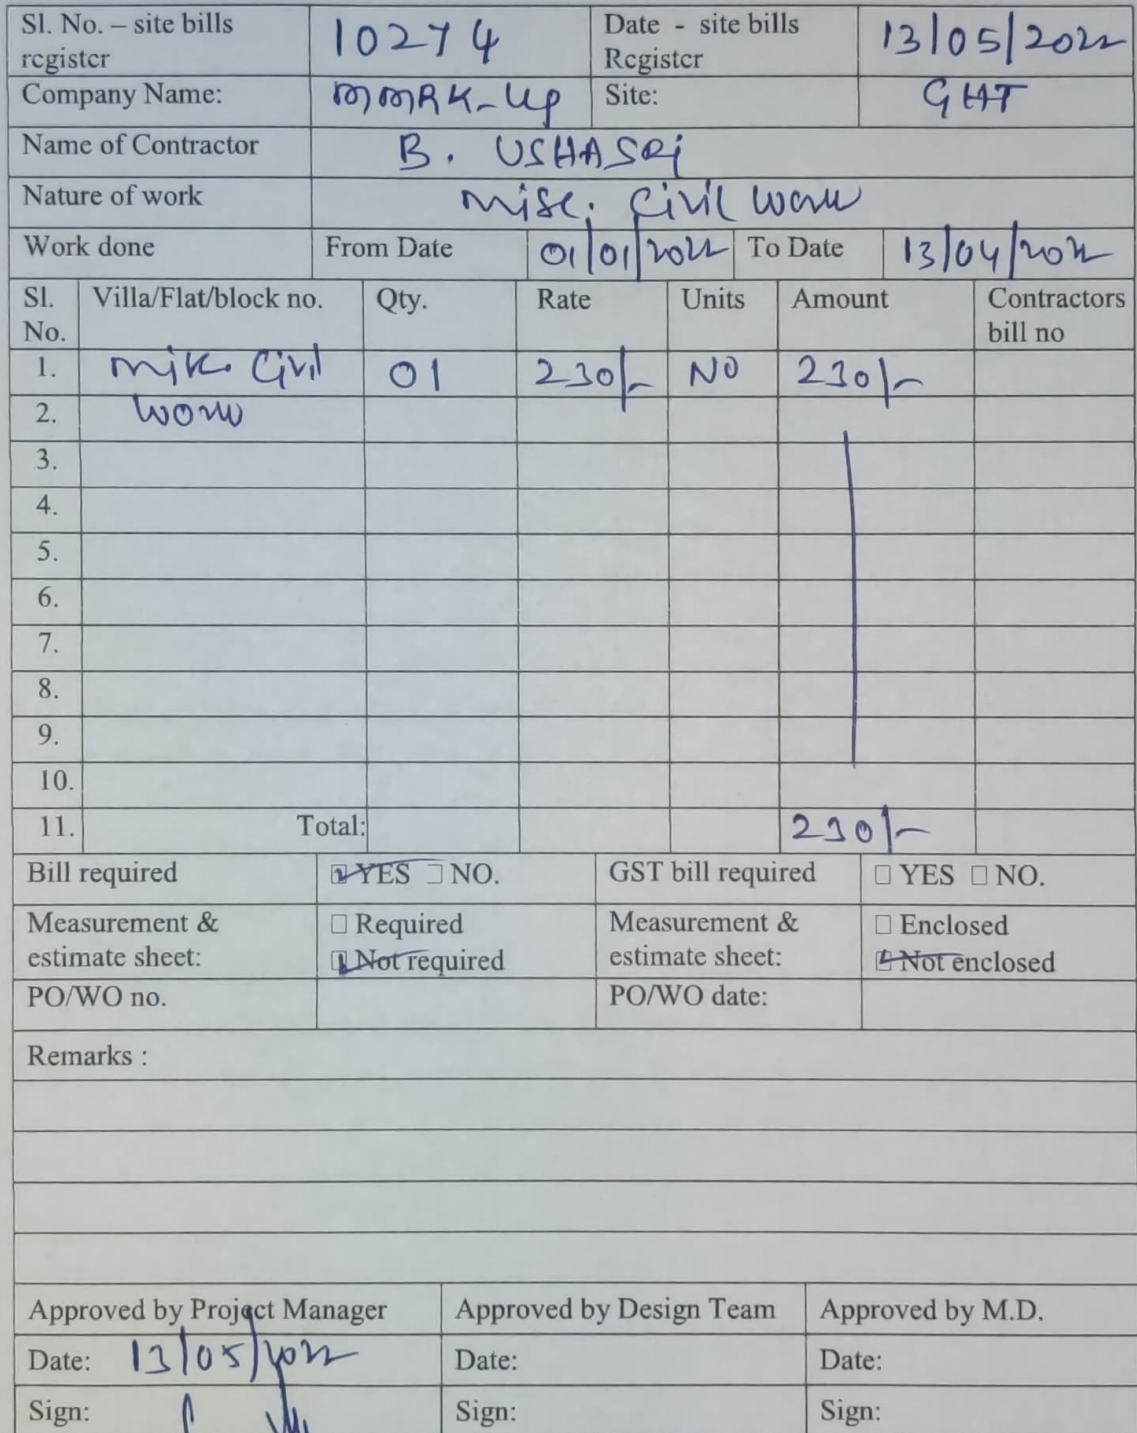 Sl. No. – site bills register 10274 Date - site bills Register 13/05/2022
Company Name: MMRK-UP Site: GHT
Name of Contractor B. USHASRi
Nature of work Misc. Civil Work
Work done From Date 01/01/2022 To Date 13/04/2022
Sl. No. Villa/Flat/block no. Qty. Rate Units Amount Contractors bill no
1. Civil 01 230/- NO 230/-
2. Work
3.
4.
5.
6.
7.
8.
9.
10.
11. Total: 230/-
Bill required YES NO. GST bill required YES NO.
Measurement & estimate sheet: Required Not required Measurement & estimate sheet: Enclosed Not enclosed
PO/WO no. PO/WO date:
Remarks :
Approved by Project Manager Approved by Design Team Approved by M.D.
Date: 13/05/2022 Date: Date:
Sign: Sign: Sign: